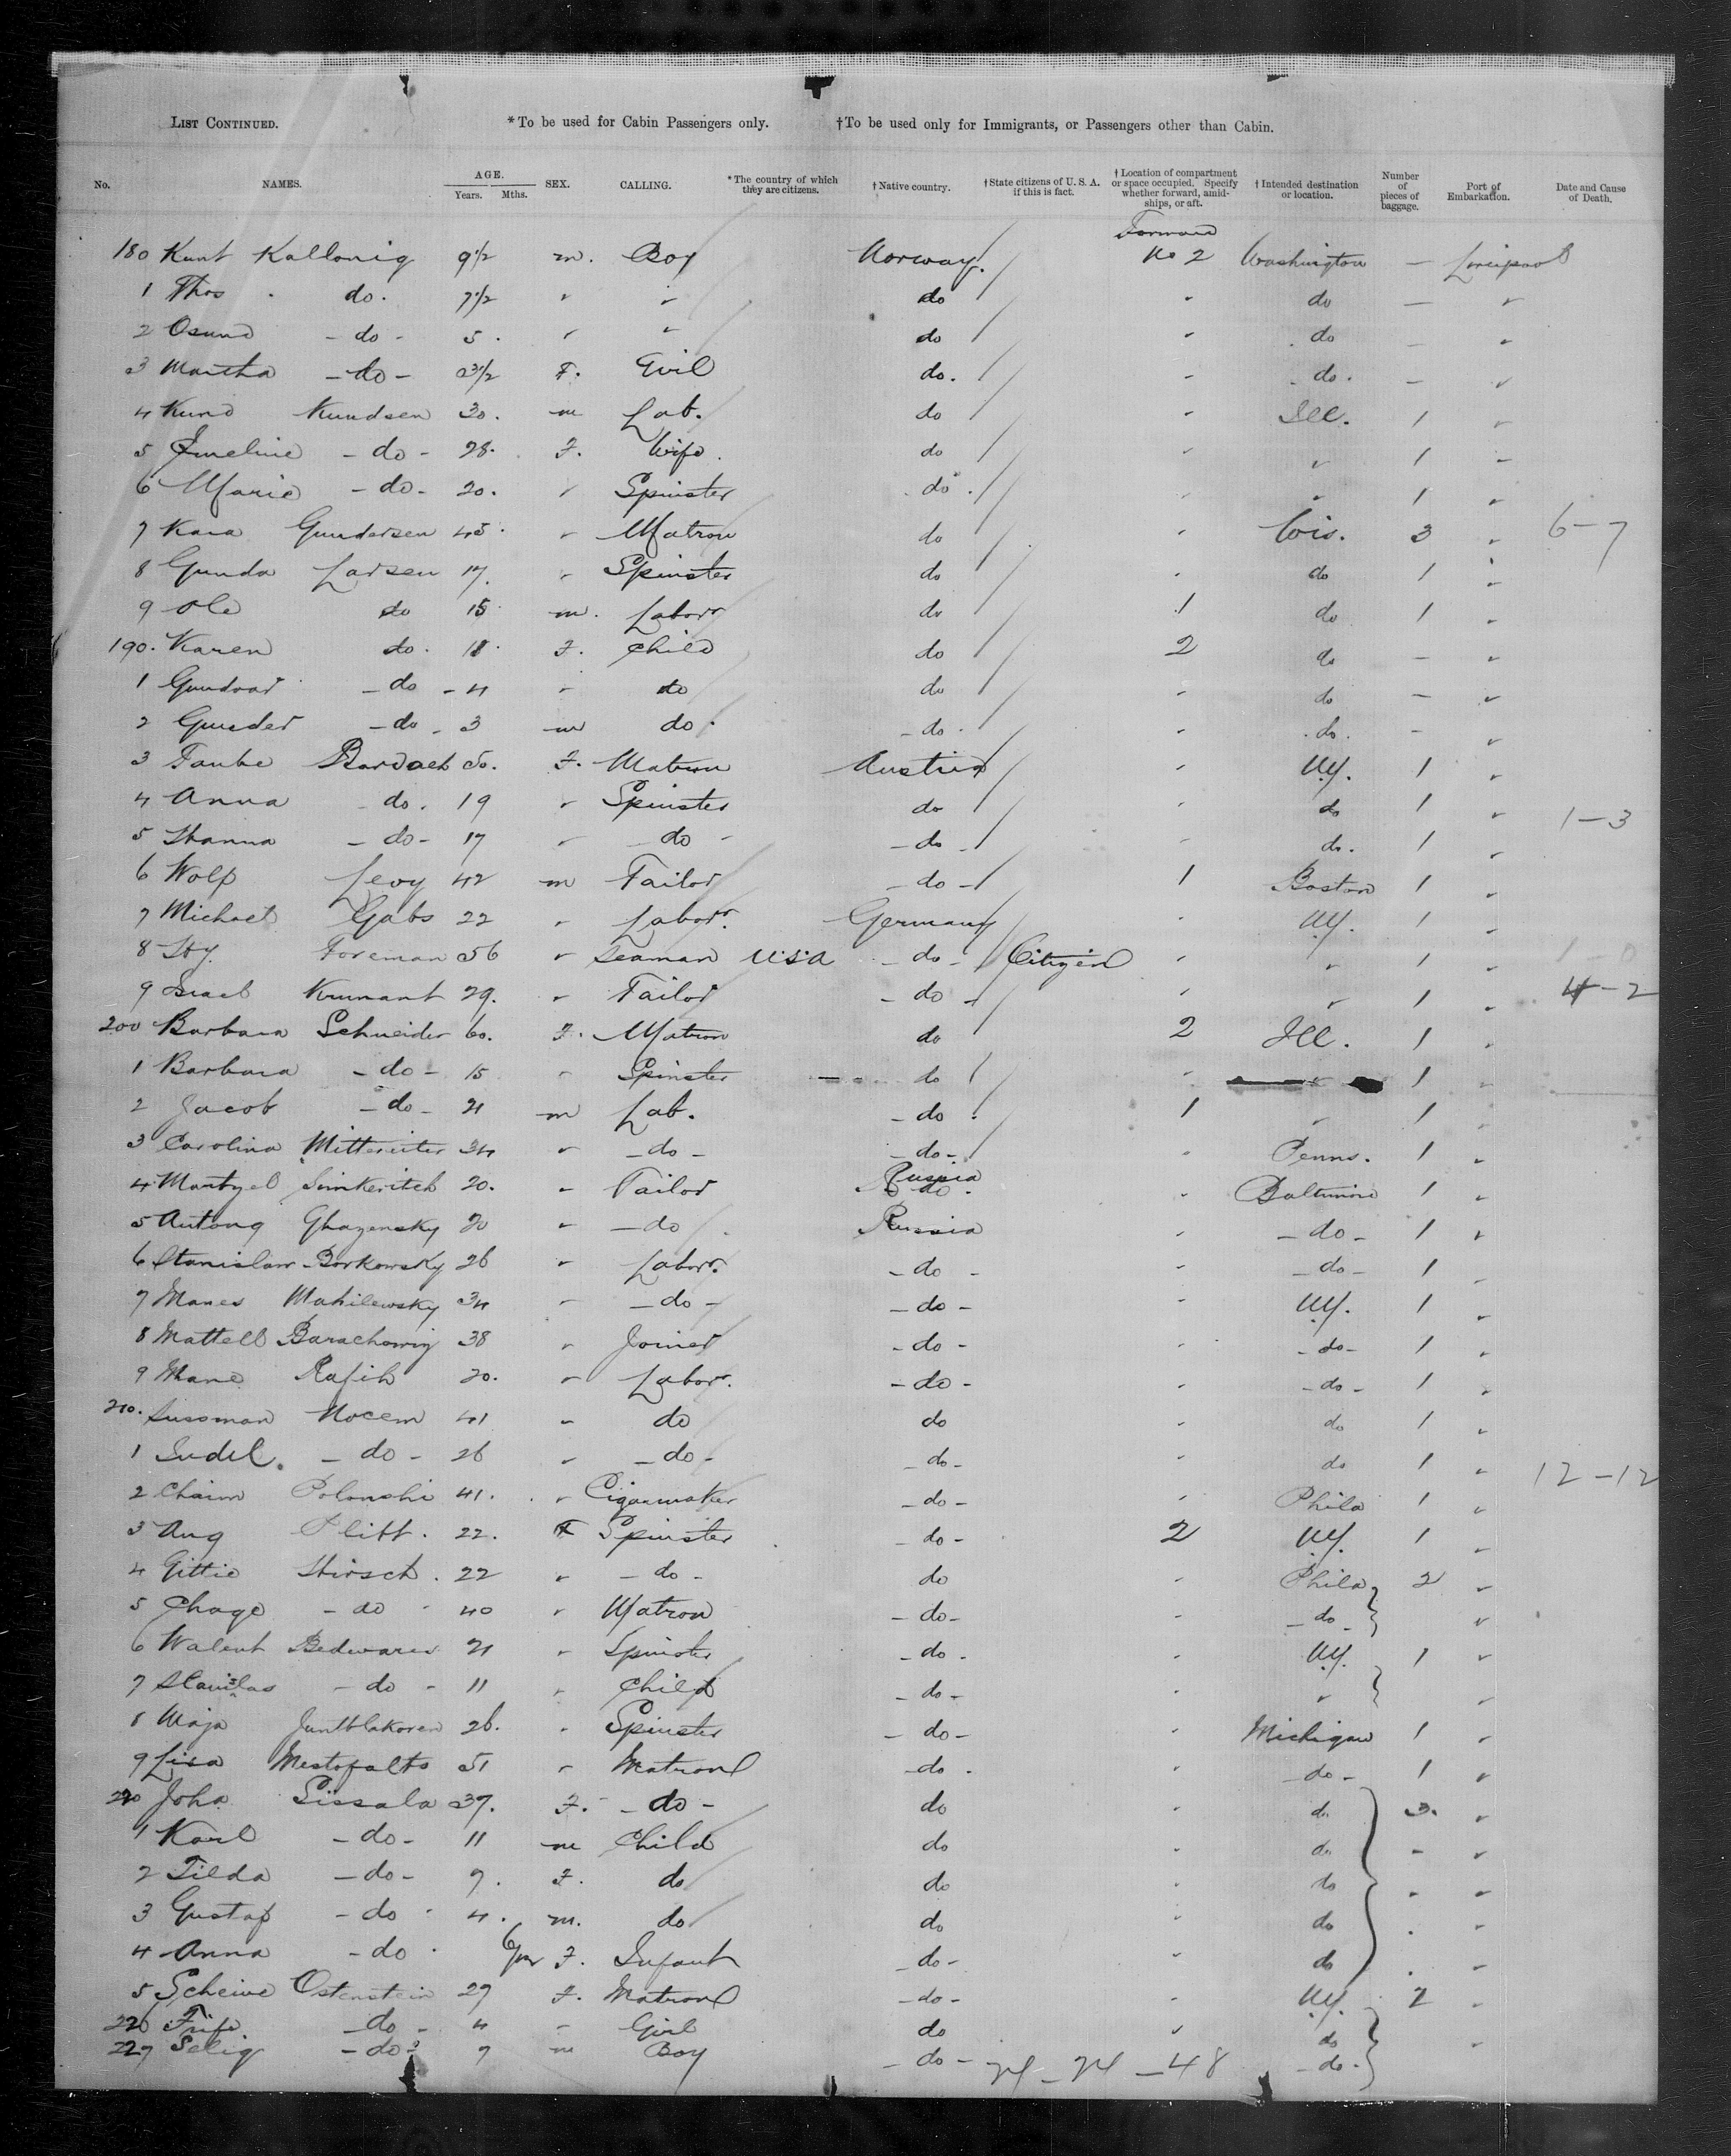 LIST CONTINUED. *To be used for Cabin Passengers only. †To be used only for Immigrants, or Passengers other than Cabin.
No. NAMES. AGE. Years. Mths. SEX. CALLING. *The country of which they are citizens. †Native country. †State citizens of U. S. A. if this is fact. †Location of compartment or space occupied. Specify whether forward, amidships, or aft. †Intended destination or location. Number of pieces of baggage. Port of Embarkation. Date and Cause of Death.
Forward
180 Kunt Kallonig 9 1/2 m. Boy Norway. No 2 Washington — Liverpool
1 Thos do. 7 1/2 " " do " do — "
2 Osund - do - 5. " " do " do — "
3 Martha - do - 3 1/2 F. Girl do. " do. — "
4 Kund Knudsen 30. m Lab. do " Ill. 1 "
5 Emeline - do - 28. F. Wife. do " " 1 "
6 Marie - do - 20. " Spinster do. " " 1 "
7 Kara Gundersen 45. " Matron do " Wis. 3 " 6-7
8 Gunda Larsen 17. " Spinster do " do 1 "
9 Ole do 15 m. Labor do 1 do 1 "
190. Karen do. 11. F. Child do 2 do — "
1 do - 4 " do do " do — "
2 Gunder - do - 3 m do. - do. " do. — "
3 Taube Bardach 50. F. Matron Austria " NY. 1 "
4 Anna do. 19 " Spinster do " do 1 " 1-3
5 Hanna - do - 17 " do - - do - " do. 1 "
6 Wolf Levy 42 m Tailor - do - 1 Boston 1 "
7 Michael Gabs 22 " Labor. Germany " NY. 1 "
8 Hy. Foreman 56 " Seaman U.S.A - do - Citizen " " 1 "
9 Israel Krumant 29. " Tailor - do - " " 1 " 4-2
200 Barbara Schneider 60. F. Matron do 2 Ill. 1 "
1 Barbara - do - 15 " Spinster do " " 1 "
2 Jacob - do - 21 m Lab. - do. 1 " 1 "
3 Carolina Mittereiter 34 " - do - - do - " Penns. 1 "
4 Mantyel Simkeritch 20. " Tailor Russia do. " Baltimore 1 "
5 Antong Ghazensky 20 " - do Russia " - do - 1 "
6 Stanislaw Borkowsky 26 " Labor. - do - " - do - 1 "
7 Manes Mahilewsky 34 " - do - - do - " NY. 1 "
8 Mattell Barachowig 38 " Joiner - do - " - do - 1 "
9 Mane Rafih 20. " Labor. - do - " - do - 1 "
210. Sussman Nocem 41 " do do " do 1 "
1 Judel. - do - 26 " - do - - do - " do 1 " 12-12
2 Chaim Polonshi 41. " Cigarmaker - do - " Phila 1 "
3 Aug Plitt. 22. F Spinster - do - 2 NY. 1 "
4 Gittie Hirsch. 22 " - do - do " Phila 2 "
5 Chage - do 40 " Matron - do - " - do - "
6 Walent 21 " Spinster - do - " NY. 1 "
7 Stanislas - do - 11 " Child - do - " " "
8 Maja Juntblakoren 26. " Spinster - do - " Michigan 1 "
9 Lisa Mestofalts 51 " Matron - do. " - do - 1 "
220 Joha Sissala 37. F. - do - do " do 3. "
1 Karl - do - 11 m Child do do - "
2 Tilda - do - 9. F. do do " do - "
3 Gustaf - do 4. m. do do " do - "
4 Anna - do 6/m F. Infant - do - " do - "
5 Scheine Ostenstein 27 F. Matron - do - " NY. 2 "
226 - do - 4 " Girl do " do "
227 Selig - do - 9 m Boy - do - 24-24-48 - do -